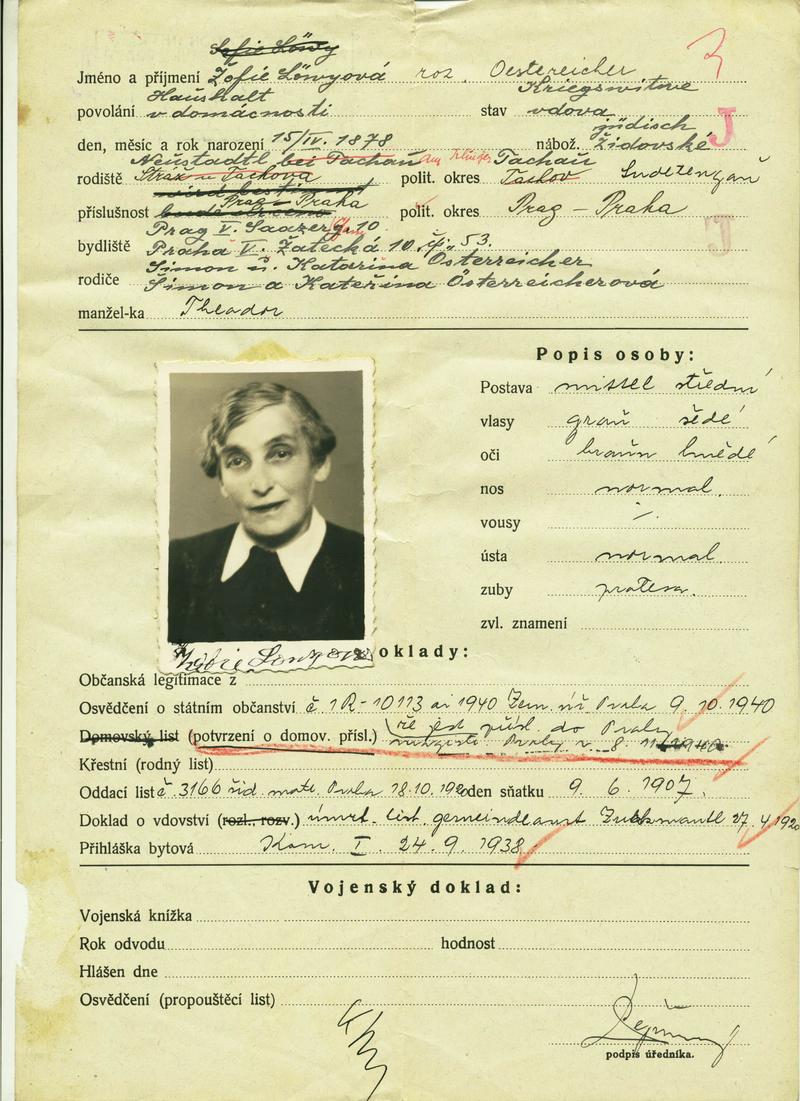 Sofie Löwy
Jméno a příjmení Žofie Löwyová roz. Oestereicher
Haushalt Kriegswitwe
povolání v domácnosti stav vdova
jüdisch J
den, měsíc a rok narození 15/IV. 1878 nábož. židovské
Neustadtl bei Tachau am Tachau
rodiště Stráž u Tachova polit. okres Tachov Sudetengau
Prag - Praha
příslušnost polit. okres Prag - Praha
Prag V. Saazerg. 10
bydliště Praha V. Žatecká 10. č. 53.
Simon u. Katarina Österreicher
rodiče Šimon a Kateřina Österreicherová
manžel-ka Theodor
J
Popis osoby:
Postava mittel střední
vlasy grau šedé
oči braun hnědé
nos normal.
vousy
ústa normal.
zuby protesa.
zvl. znamení
Doklady:
Občanská legitimace z
Osvědčení o státním občanství č. 1R-10113 ai 1940 Zem. úř. Praha 9. 10. 1940
Domovský list (potvrzení o domov. přísl.) že jest přísl. do Prahy
Křestní (rodný list)
Oddací list č. 3166 žid. mat. Praha 18. 10. den sňatku 9. 6. 1907.
Doklad o vdovství (rozl., rozv.) úmrt. list. gemeindeamt Zuckmantl 27. 4. 192
Přihláška bytová Kom. I. 24. 9. 1938
Vojenský doklad:
Vojenská knížka
Rok odvodu hodnost
Hlášen dne
Osvědčení (propouštěcí list)
podpis úředníka.